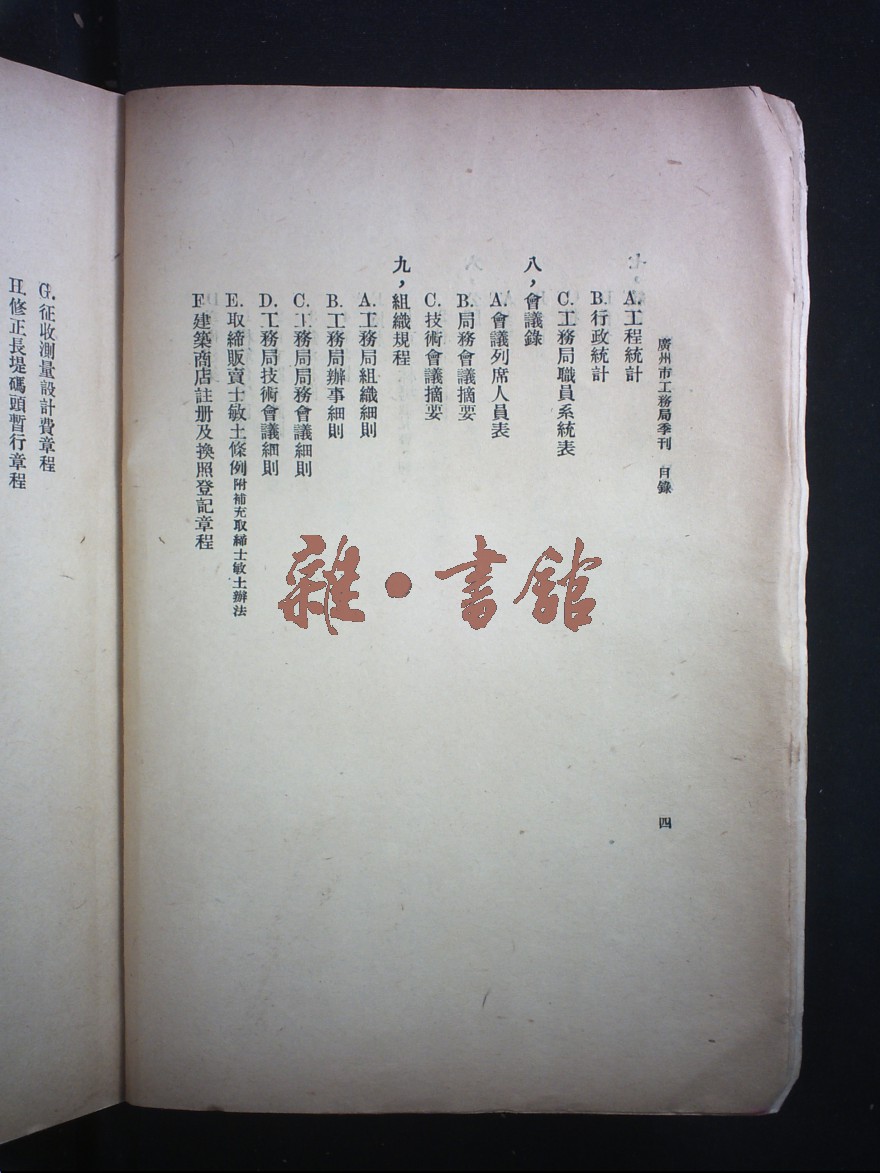 廣州市工務局季刊 目錄 四
七，
A.工程統計
B.行政統計
C.工務局職員系統表
八，會議錄
A.會議列席人員表
B.局務會議摘要
C.技術會議摘要
九，組織規程
A.工務局組織細則
B.工務局辦事細則
C.工務局局務會議細則
D.工務局技術會議細則
E.取締販賣士敏土條例附補充取締士敏土辦法
F.建築商店註册及換照登記章程
G.征收測量設計費章程
H.修正長堤碼頭暫行章程
雜·書館